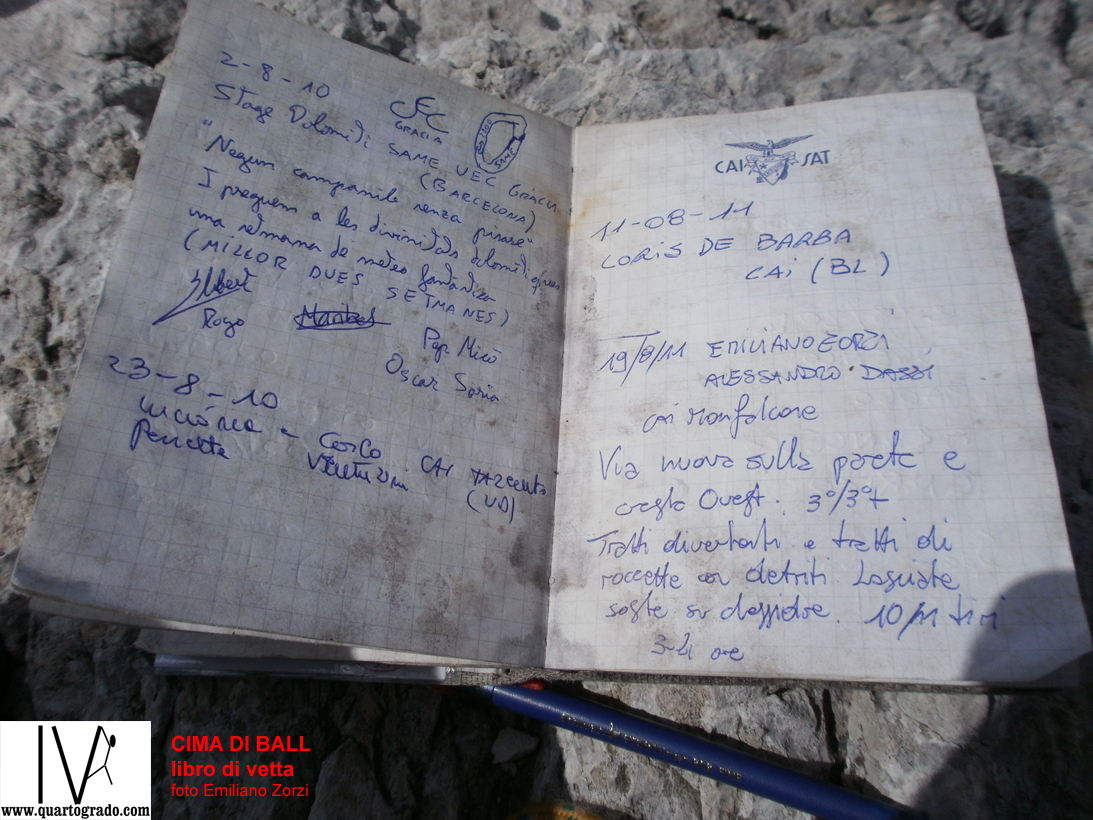 2-8-10
UEC
GRÀCIA
SAME
Stage Dolomiti SAME UEC GRÀCIA
(BARCELONA)
"Negun campanile senza pisase"
I preguem a les divinitats dolomitiques
una setmana de meteo fantàstica
(MILLOR DUES SETMANES)
Albert
Royo
Maribel
Pepe Micó
Oscar Soria
23-8-10
e CAI TARCENTO
(UD)
CAI SAT
11-08-11
LORIS DE BARBA
CAi (BL)
19/8/11 EMILIANO ZORZI,
ALESSANDRO DASSI
cai Monfalcone
Via nuova sulla parete e
cresta Ovest. 3°/3°+
Tratti divertenti e tratti di
roccette con detriti Lasciate
soste su clessidre. 10/11 tiri
3-4 ore
IV
www.quartogrado.com
CIMA DI BALL
libro di vetta
foto Emiliano Zorzi